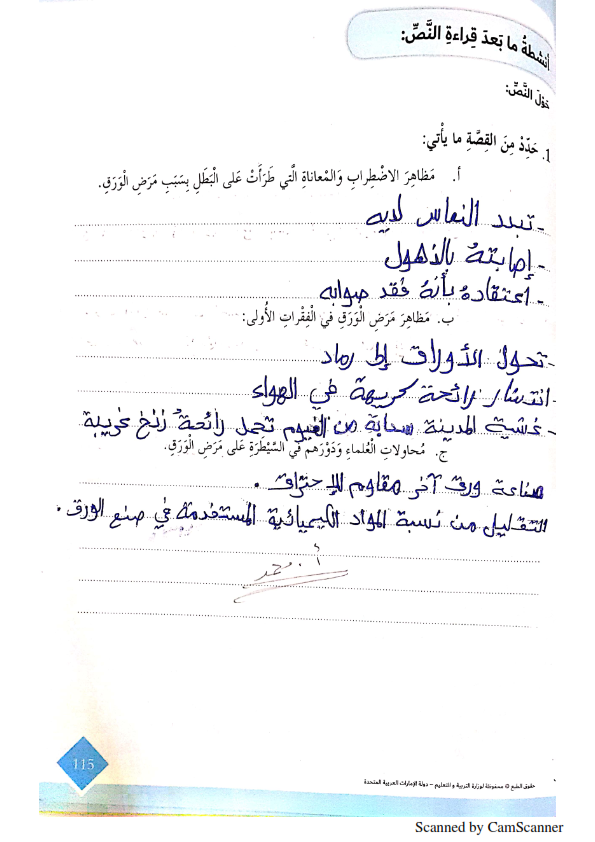 أنشطةُ ما بَعدَ قِراءةِ النَّصِّ:
حَوْلَ النَّصِّ:
1. حَدِّدْ مِنَ القِصَّةِ ما يأْتي:
أ. مَظاهِرَ الاضْطِرابِ وَالمُعاناةِ الَّتي طَرَأَتْ عَلى البَطَلِ بِسَبَبِ مَرَضِ الْوَرَقِ.
- تبدد النعاس لديه
- إصابتهُ بالذهول
- اعتقادهُ بأنهُ فقد صوابه
ب. مَظاهِرَ مَرَضِ الْوَرَقِ في الْفِقْراتِ الأُولى:
- تحول الأوراق إلى رماد
- انتشار رائحة كريهة في الهواء
- غشية المدينة سحابة من الغيوم تحمل رائحة زنخ غريبة
ج. مُحاولاتِ الْعُلماءِ وَدَوْرَهُمْ في السَّيْطَرَةِ عَلى مَرَضِ الْوَرَقِ.
صناعة ورق آخر مقاوم للإحتراق.
التقليل من نسبة المواد الكيميائية المستخدمة في صنع الورق.
أ. محمد
115
حقوق الطبع © محفوظة لوزارة التربية والتعليم – دولة الإمارات العربية المتحدة
Scanned by CamScanner